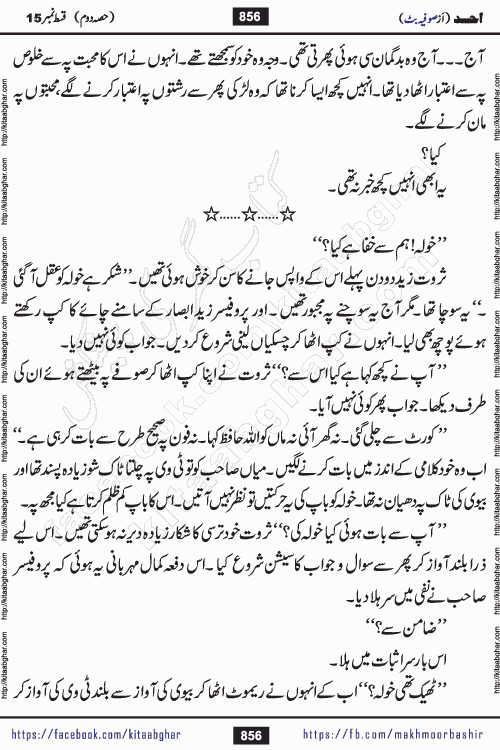 احمد (از صوفیہ بٹ)
856
(حصہ دوم) قسط نمبر 15
آج ۔۔۔ آج وہ بدگمان سی ہوئی پھرتی تھی۔ وجہ وہ خود کو سمجھتے تھے۔ انہوں نے اس کا محبت پہ سے خلوص
پہ سے اعتبار اٹھا دیا تھا۔ انہیں کچھ ایسا کرنا تھا کہ وہ لڑکی پھر سے رشتوں پہ اعتبار کرنے لگے، محبتوں پہ
مان کرنے لگے۔
کیا؟
یہ ابھی انہیں کچھ خبر نہ تھی۔
☆......☆......☆
’’خولہ! ہم سے خفا ہے کیا؟‘‘
ثروت زید دو دن پہلے اس کے واپس جانے کا سن کر خوش ہوئی تھیں۔ ’’شکر ہے خولہ کو عقل آ گئی
۔‘‘ یہ سوچا تھا۔ مگر آج یہ سوچنے پہ مجبور تھیں۔ اور پروفیسر زید ابصار کے سامنے چائے کا کپ رکھتے
ہوئے پوچھ بھی لیا۔ انہوں نے کپ اٹھا کر چسکیاں لینی شروع کر دیں۔ جواب کوئی نہیں دیا۔
’’آپ نے کچھ کہا ہے کیا اس سے؟‘‘ ثروت نے اپنا کپ اٹھا کر صوفے پہ بیٹھتے ہوئے ان کی
طرف دیکھا۔ جواب پھر کوئی نہیں آیا۔
’’کورٹ سے چلی گئی۔ نہ گھر آئی نہ ماں کو اللہ حافظ کہا۔ نہ فون پہ صحیح طرح سے بات کر رہی ہے۔‘‘
اب وہ خود کلامی کے انداز میں بات کرنے لگیں۔ میاں صاحب کو تو ٹی وی پہ چلتا ٹاک شو زیادہ پسند تھا اور
بیوی کی ٹاک پہ دھیان نہ تھا۔ خولہ کو باپ کی یہ حرکتیں تو نظر نہیں آتیں۔ اس کا باپ کم ظلم کرتا ہے کیا مجھ پہ۔
’’آپ سے بات ہوئی کیا خولہ کی؟‘‘ ثروت خود ترسی کا شکار زیادہ دیر نہ ہو سکتی تھیں۔ اس لیے
ذرا بلند آواز کر پھر سے سوال و جواب کا سیشن شروع کیا۔ اس دفعہ کمال مہربانی یہ ہوئی کہ پروفیسر
صاحب نے نفی میں سر ہلا دیا۔
’’ضامن سے؟‘‘
اس بار سر اثبات میں ہلا۔
’’ٹھیک تھی خولہ؟‘‘ اب کے انہوں نے ریموٹ اٹھا کر بیوی کی آواز سے بلند ٹی وی کی آواز کر
https://facebook.com/kitaabghar
856
https://fb.com/makhmoorbashir
http://kitaabghar.com